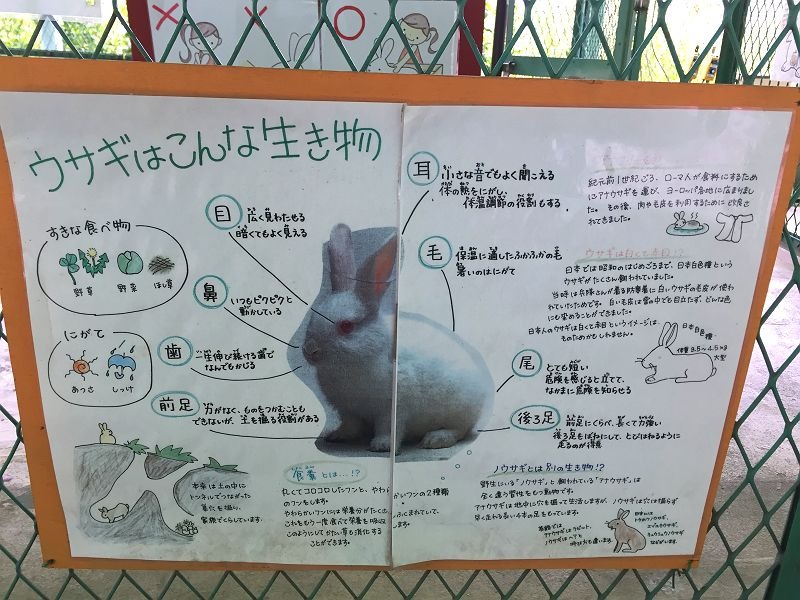 ウサギはこんな生き物
すきな食べ物
野草 野菜 ほし草
にがて
あつさ しっけ
目 広く見わたせる
暗くてもよく見える
鼻 いつもピクピクと
動かしている
歯 一生伸び続ける歯で
なんでもかじる
前足 力がなく、ものをつかむことも
できないが、土を掘る役割がある
耳 小さな音でもよく聞こえる
体の熱をにがし、
体温調節の役割もする
毛 保温に適したふかふかの毛
暑いのはにがて
尾 とても短い
危険を感じると立てて、
なかまに危険を知らせる
後ろ足 前足にくらべ、長くて力強い
後ろ足をばねにして、とびはねるように
走るのが得意
本来は土の中に
トンネルでつながった
巣穴を掘り、
家族でくらしています。
食糞とは…!?
丸くてコロコロしたフンと、やわらかいフンの2種類
のフンをします。
やわらかいフンには栄養分がたくさんふくまれていて、
これをもう一度食べて栄養を吸収
このようにしてかたい草も消化する
ことができます。
紀元前1世紀ごろ、ローマ人が食料にするため
にアナウサギを運び、ヨーロッパ各地に広まりまし
た。その後、肉や毛皮を利用するために改良さ
れてきました。
ウサギは白くて赤目!?
日本では昭和のはじめごろまで、日本白色種という
ウサギがたくさん飼われていました。
当時は兵隊さんが着る防寒着に白いウサギの毛皮が使わ
れていたためです。白い毛皮は雪の中でも目立たず、どんな色
にも染めることができました。
日本人のウサギは白くて赤目というイメージは、
そのためかもしれません。
日本白色種
体重3.5~4.5kg
大型
ノウサギとは別の生き物!?
野生にいる「ノウサギ」と飼われている「アナウサギ」は
全く違う習性をもつ動物です。
アナウサギは地中に穴を掘って生活しますが、ノウサギは穴は掘らず
早く走れる長い4本の足をもっています。
英語では
アナウサギはラビット、
ノウサギはヘアと
呼び方も違います。
日本には
トウホクノウサギ、
エゾユキウサギ、
キュウシュウノウサギ
などがいます。